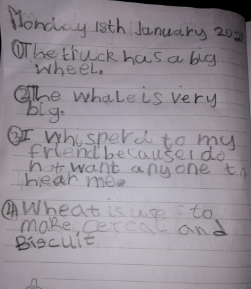 Monday 18th January 202
①The truck has a big
wheel.
②The whale is very
big.
③I whisperd to my
friend because i do
not want anyone to
hear me.
④Wheat is use to
make cereal and
Biscuit